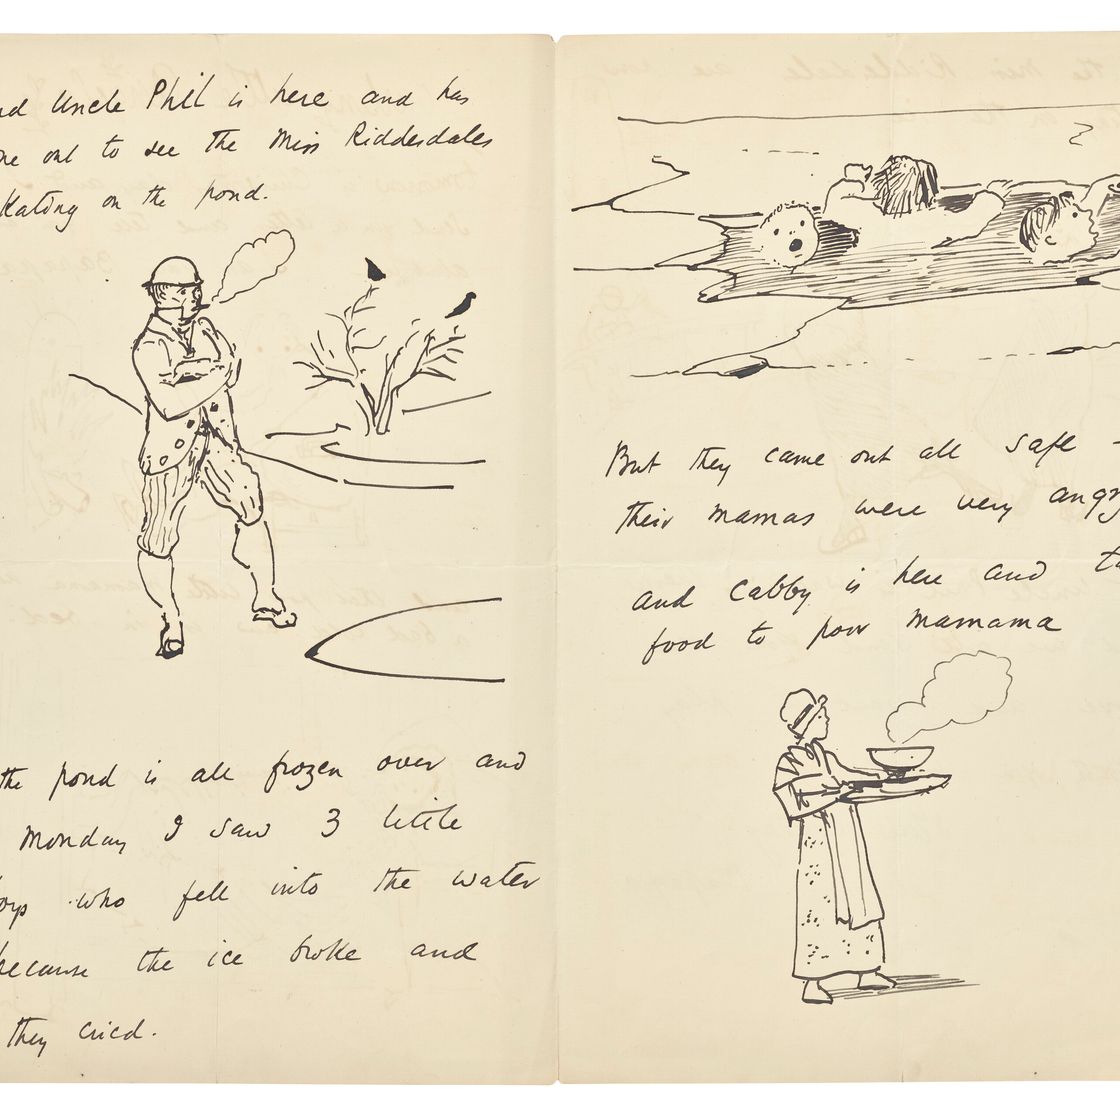 nd Uncle Phil is here and has
ne out to see the Miss Riddesdales
skating on the pond.
the pond is all frozen over and
Monday I saw 3 little
oys who fell into the water
because the ice broke and
they cried.
But they came out all safe -
their mamas were very angry
and Cabby is here and ta
food to poor mamama